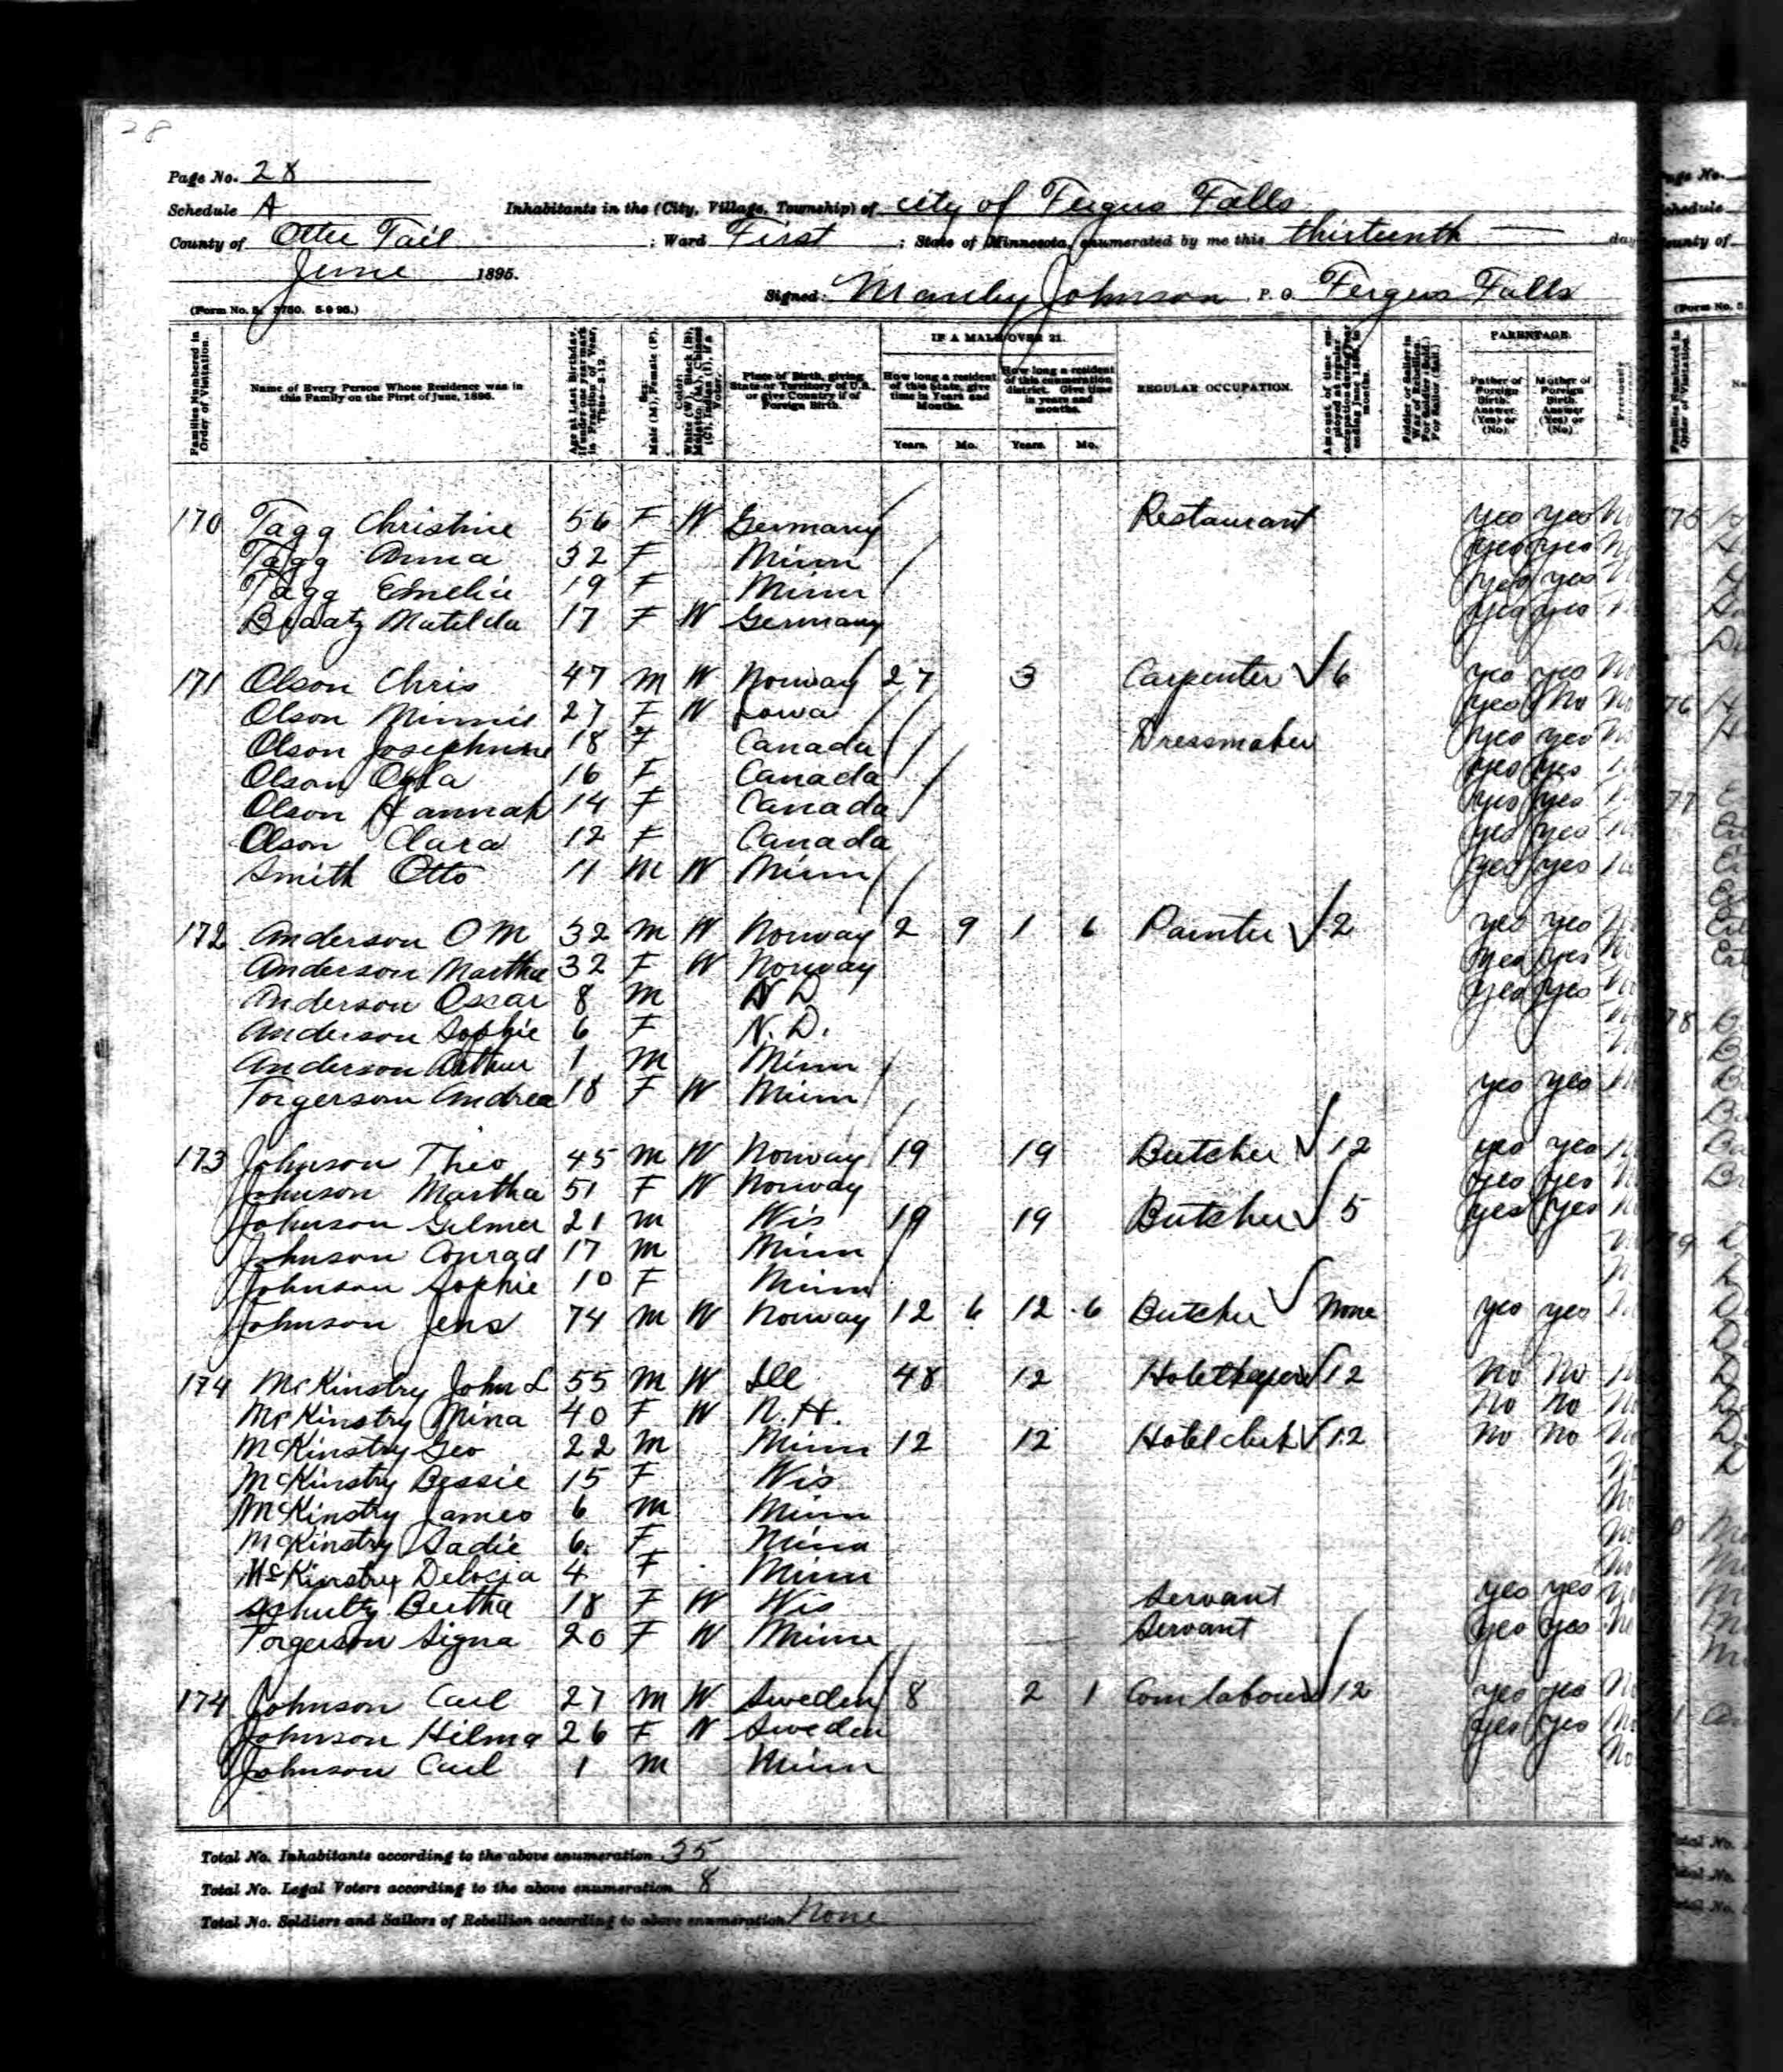 28
Page No. 28
Schedule A Inhabitants in the (City, Village, Township) of city of Fergus Falls
County of Otter Tail ; Ward First ; State of Minnesota, enumerated by me this thirteenth day
June 1895.
Signed: Manley Johnson P. O. Fergus Falls
(Form No. 5. 3750. 5-9 95.)
Families Numbered in Order of Visitation.
Name of Every Person Whose Residence was in this Family on the First of June, 1895.
Sex: Male (M), Female (F).
Place of Birth, giving State or Territory of U.S., or give Country if of Foreign Birth.
IF A MALE OVER 21.
How long a resident of this State, give time in Years and Months.
How long a resident of this enumeration district. Give time in years and months.
Years. Mo. Years. Mo.
REGULAR OCCUPATION.
PARENTAGE.
Father of Foreign Birth. Answer (Yes) or (No).
Mother of Foreign Birth. Answer (Yes) or (No).
170 Tagg Christine 56 F W Germany Restaurant yes yes No
Tagg Anna 32 F Minn yes yes
Tagg Emelie 19 F Minn yes yes
Braatz Matilda 17 F W Germany yes yes
171 Olson Chris 47 M W Norway 27 3 Carpenter 6 yes yes No
Olson Minnie 27 F W Iowa yes No No
Olson Josephine 18 F Canada Dressmaker yes yes
Olson 16 F Canada yes yes
Olson Hannah 14 F Canada yes yes
Olson Clara 12 F Canada yes yes
Smith Otto 11 M W Minn yes yes
172 Anderson O M 32 M W Norway 2 9 1 6 Painter 2 yes yes
Anderson Martha 32 F W Norway yes yes
Anderson Oscar 8 M N D yes yes
Anderson Sophie 6 F N. D.
Anderson Arthur 1 M Minn
Torgerson Andrea 18 F W Minn yes yes
173 Johnson Theo 45 M W Norway 19 19 Butcher 12 yes yes
Johnson Martha 51 F W Norway yes yes
Johnson Gilmer 21 M Wis 19 19 Butcher 5 yes yes
Johnson Conrad 17 M Minn
Johnson Sophie 10 F Minn
Johnson Jens 74 M W Norway 12 6 12 6 Butcher None yes yes
174 McKinstry John L 55 M W Ill 48 12 Hotelkeeper 12 No No
McKinstry Mina 40 F W N. H. No No
McKinstry Geo 22 M Minn 12 12 Hotel clerk 12 No No
McKinstry Bessie 15 F Wis
McKinstry James 6 M Minn No
McKinstry Sadie 6 F Minn No
McKinstry 4 F Minn No
Schultz Bertha 18 F W Wis Servant yes yes
Torgerson Signa 20 F W Minn Servant yes yes
174 Johnson Carl 27 M W Sweden 8 2 1 Com labour 12 yes yes No
Johnson Hilma 26 F W Sweden yes yes No
Johnson Carl 1 M Minn No
Total No. Inhabitants according to the above enumeration 35
Total No. Legal Voters according to the above enumeration 8
Total No. Soldiers and Sailors of Rebellion according to above enumeration None